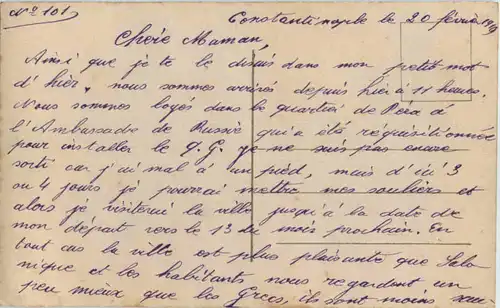 Nº 101
Constantinople le 20 février 1919
Chère Maman
Ainsi que je te le disais dans mon petit mot
d'hier, nous sommes arrivés depuis hier à 11 heures.
Nous sommes logés dans le quartier de Péra à
l'Ambassade de Russie qui a été réquisitionnée
pour installer le Q.G. je ne suis pas encore
sorti car j'ai mal à un pied, mais d'ici 3
ou 4 jours je pourrai mettre mes souliers et
alors je visiterai la ville jusqu'à la date de
mon départ vers le 13 du mois prochain. En
tout cas la ville est plus plaisante que Salo
nique et les habitants nous regardent un
peu mieux que les Grecs, ils sont moins sau